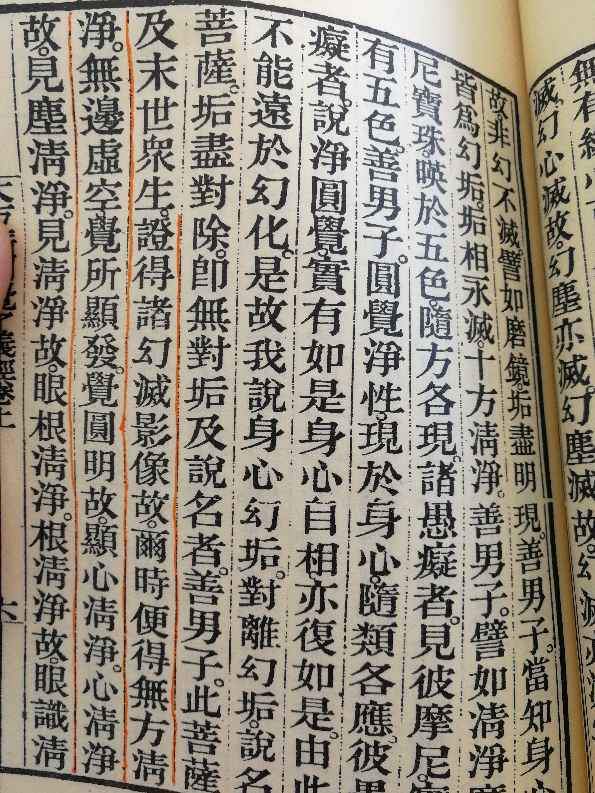 無有
滅。幻心滅故。幻塵亦滅。幻塵滅故。幻滅
故。非幻不滅。譬如磨鏡垢盡明現。善男子。當知身心
皆爲幻垢。垢相永滅。十方淸淨。善男子。譬如淸淨摩
尼寶珠。映於五色。隨方各現。諸愚癡者。見彼摩尼。實
有五色。善男子。圓覺淨性。現於身心。隨類各應。彼愚
癡者。說淨圓覺。實有如是身心自相。亦復如是。由此
不能遠於幻化。是故我說身心幻垢。對離幻垢。說名
菩薩。垢盡對除。卽無對垢及說名者。善男子。此菩薩
及末世衆生。證得諸幻滅影像故。爾時便得無方淸
淨。無邊虛空。覺所顯發。覺圓明故。顯心淸淨。心淸淨
故。見塵淸淨。見淸淨故。眼根淸淨。根淸淨故。眼識淸
義經卷上
六